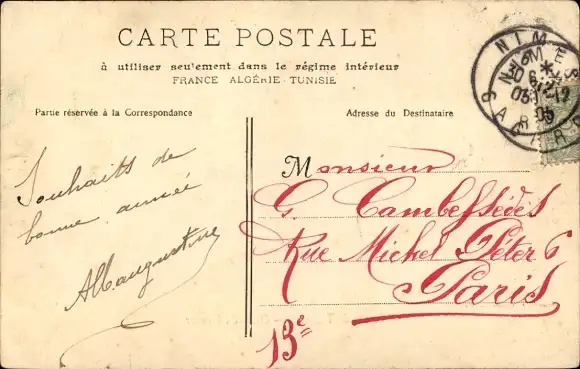 CARTE POSTALE
à utiliser seulement dans le régime intérieur
FRANCE ALGÉRIE - TUNISIE
Partie réservée à la Correspondance
Adresse du Destinataire
Souhaits de
bonne année
Monsieur
G. Cambessédès
Rue Michel Péter 6
Paris
13e
NIMES
GARD
30
12
05